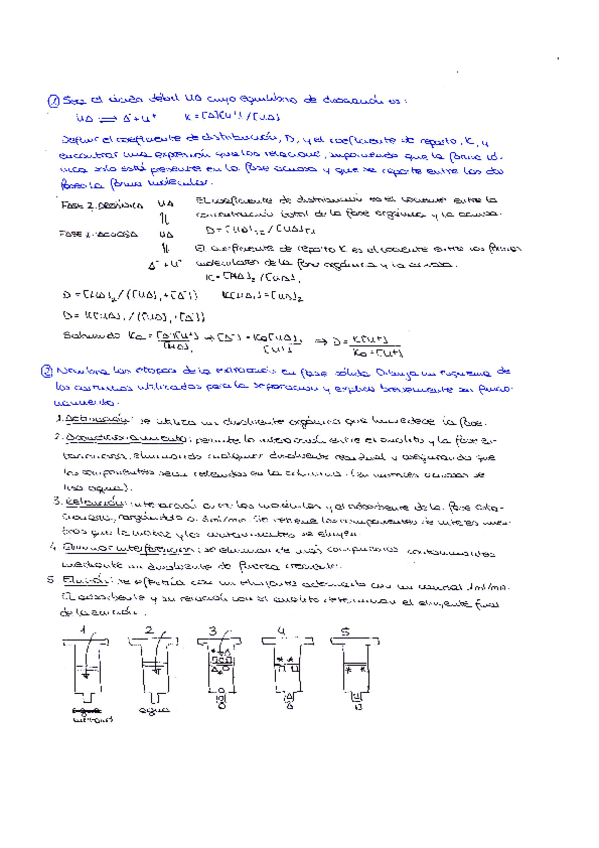 ① Sea el ácido débil HA cuyo equilibrio de disociación es:
HA ⇌ A⁻ + H⁺ K = [A][H⁺]/[HA]
Definir el coeficiente de distribución, D, y el coeficiente de reparto, K, y
encontrar una expresión que los relacione, suponiendo que la forma ió-
nica sólo está presente en la fase acuosa y que se reparte entre las dos
fases la forma molecular.
FASE 2. ORGÁNICA HA El coeficiente de distribución es el cociente entre la
⇅ concentración total de la fase orgánica y la acuosa.
FASE 1. ACUOSA HA D = [HA]T2 / [HA]T1
⇅ El coeficiente de reparto K es el cociente entre las formas
A⁻ + H⁺ moleculares de la fase orgánica y la acuosa.
K = [HA]₂ / [HA]₁
D = [HA]₂ / ([HA]₁ + [A⁻]) K[HA]₁ = [HA]₂
D = K[HA]₁ / ([HA]₁ + [A⁻])
Sabiendo Ka = [A⁻][H⁺] / [HA]₁ → [A⁻] = Ka[HA]₁ / [H⁺] ⇒ D = K[H⁺] / Ka + [H⁺]
② Nombra las etapas de la extracción en fase sólida. Dibuja un esquema de
los cartuchos utilizados para la separación y explica brevemente su funcio-
namiento.
1. Activación: se utiliza un disolvente orgánico que humedece la fase.
2. Acondicionamiento: permite la interacción entre el analito y la fase es-
tacionaria, eliminando cualquier disolvente residual y asegurando que
los componentes sean retenidos en la columna. (En matrices acuosas se
usa agua).
3. Retención: interacción entre las moléculas y el adsorbente de la fase esta-
cionaria, Se retiene los componentes de interés mien-
tras que la matriz y los se eluyen.
4. Eliminar interferencias: se eliminan de más compuestos contaminantes
mediante un disolvente de fuerza creciente.
5. Elución: se efectúa con un eluyente adecuado con un caudal 1ml/min.
El adsorbente y su relación con el analito determinan el eluyente final
de la elución.
1 2 3 4 5
agua agua